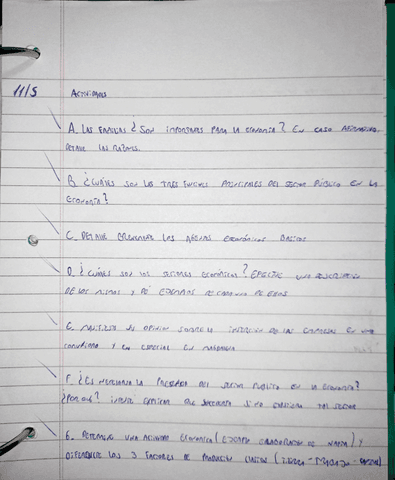 11/5 Actividades
A. Las familias ¿Son importantes para la economía? En caso afirmativo,
detalle las razones.
B. ¿Cuáles son las tres funciones principales del sector público en la
economía?
C. Detalle brevemente los agentes económicos básicos
D. ¿Cuáles son los sectores económicos? Efectúe una descripción
de los mismos y dé ejemplos de cada uno de ellos
E. Manifieste su opinión sobre la de las empresas en una
comunidad y en especial en
F. ¿Es necesaria la presencia del sector público en la economía?
¿Por qué? Intente explicar que sucedería si no existiera tal sector
G. Determine una actividad económica (ejemplo elaboración de ) y
diferencie los 3 factores de producción (tierra - trabajo - capital)